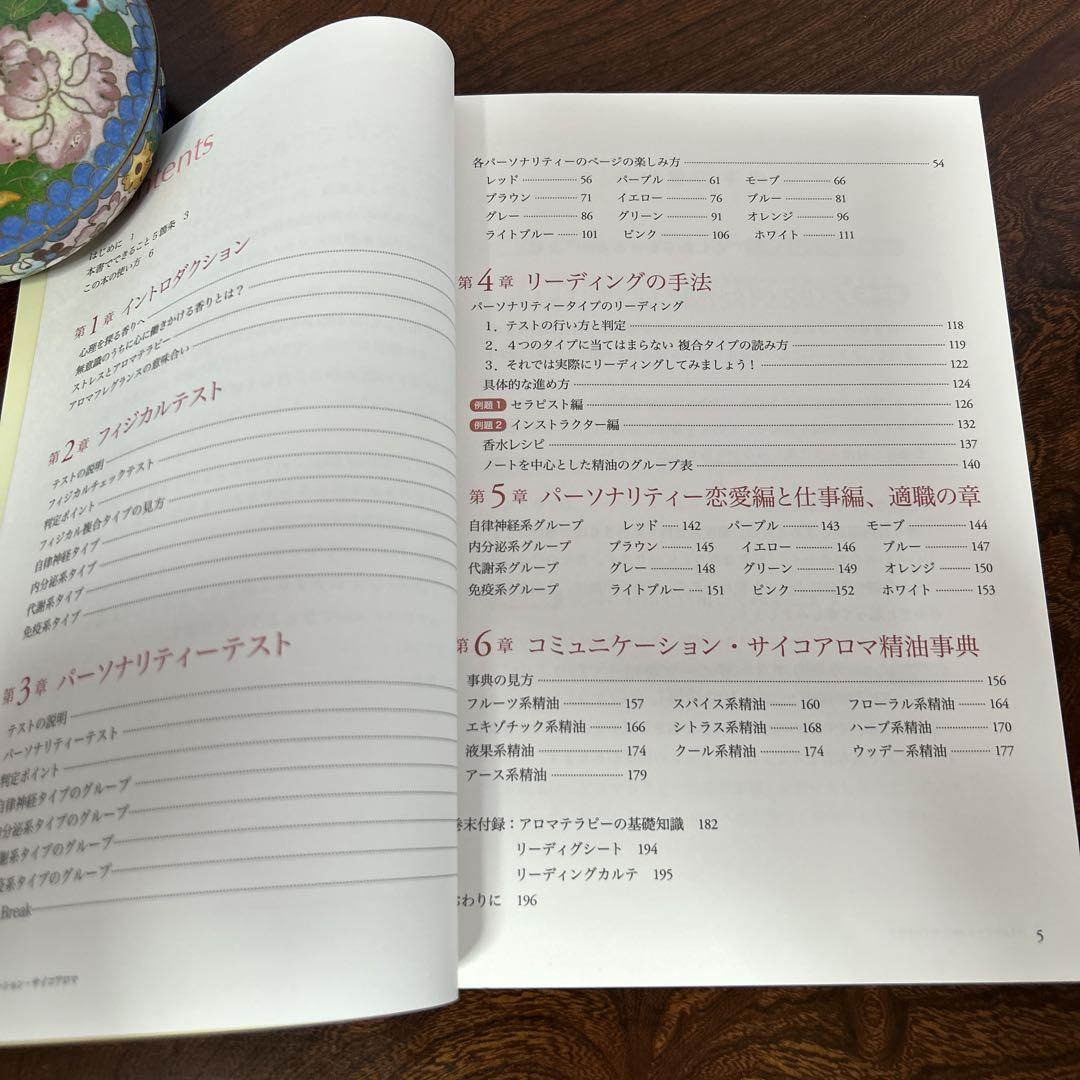 ntents
はじめに 1
本書でできること5箇条 3
この本の使い方 6
第1章 イントロダクション
心理を探る香りへ
無意識のうちに心に働きかける香りとは？
ストレスとアロマテラピー
アロマフレグランスの意味合い
第2章 フィジカルテスト
テストの説明
フィジカルチェックテスト
判定ポイント
フィジカル複合タイプの見方
自律神経タイプ
内分泌系タイプ
代謝系タイプ
免疫系タイプ
第3章 パーソナリティーテスト
テストの説明
パーソナリティーテスト
判定ポイント
自律神経タイプのグループ
内分泌系タイプのグループ
謝系タイプのグループ
疫系タイプのグループ
Break
ション・サイコアロマ
各パーソナリティーのページの楽しみ方 54
レッド 56 パープル 61 モーブ 66
ブラウン 71 イエロー 76 ブルー 81
グレー 86 グリーン 91 オレンジ 96
ライトブルー 101 ピンク 106 ホワイト 111
第4章 リーディングの手法
パーソナリティータイプのリーディング
1．テストの行い方と判定 118
2．4つのタイプに当てはまらない 複合タイプの読み方 119
3．それでは実際にリーディングしてみましょう！ 122
具体的な進め方 124
例題1 セラピスト編 126
例題2 インストラクター編 132
香水レシピ 137
ノートを中心とした精油のグループ表 140
第5章 パーソナリティー恋愛編と仕事編、適職の章
自律神経系グループ レッド 142 パープル 143 モーブ 144
内分泌系グループ ブラウン 145 イエロー 146 ブルー 147
代謝系グループ グレー 148 グリーン 149 オレンジ 150
免疫系グループ ライトブルー 151 ピンク 152 ホワイト 153
第6章 コミュニケーション・サイコアロマ精油事典
事典の見方 156
フルーツ系精油 157 スパイス系精油 160 フローラル系精油 164
エキゾチック系精油 166 シトラス系精油 168 ハーブ系精油 170
液果系精油 174 クール系精油 174 ウッデー系精油 177
アース系精油 179
巻末付録：アロマテラピーの基礎知識 182
リーディグシート 194
リーディングカルテ 195
おわりに 196
5